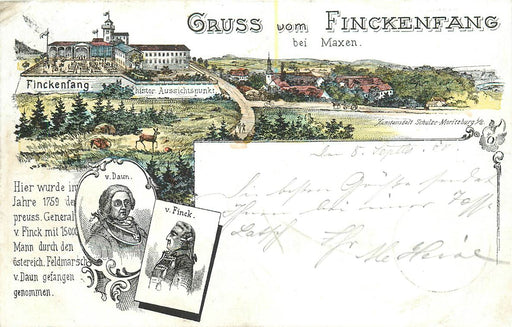 GRUSS VOM FINCKENFANG
bei Maxen.
Finckenfang
histor. Aussichtspunkt
Kunstanstalt Schulze Moritzburg
v. Daun.
v. Finck.
Hier wurde im
Jahre 1759 der
preuss. General
v. Finck mit 15000
Mann durch den
östereich. Feldmarsch.
v. Daun gefangen
genommen.
den 8. Sept.
Die besten Grüße sendet
Ihnen bei einer